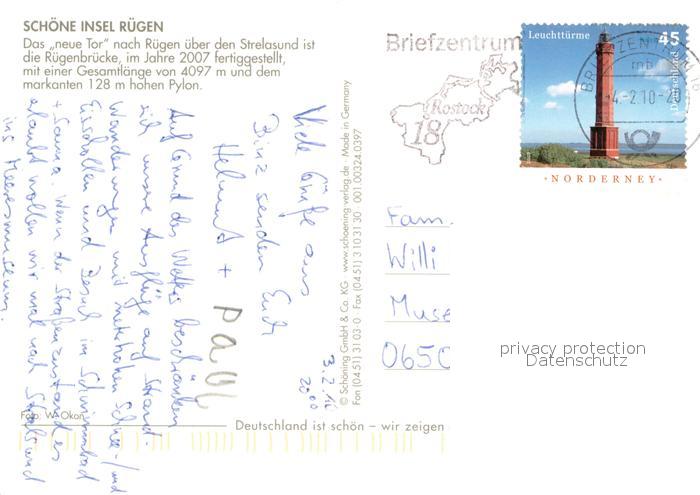 SCHÖNE INSEL RÜGEN
Das „neue Tor" nach Rügen über den Strelasund ist
die Rügenbrücke, im Jahre 2007 fertiggestellt,
mit einer Gesamtlänge von 4097 m und dem
markanten 128 m hohen Pylon.
3.2.10
20⁰⁰
Viele Grüße aus
Binz senden Euch
Helmut + Paul
Auf Grund des Wetters beschränken
sich unsere Ausflüge auf Strand-
Wanderungen mit meterhohen Schnee-/und
Eisschollen und Besuch im Schwimmbad
+ Sauna. Wenn der Straßenzustand es
erlaubt wollen wir mal nach Stralsund
ins Meeresmuseum.
Foto: W. Okon
© Schöning GmbH & Co. KG · www.schoening-verlag.de · Made in Germany
Fon (04 51) 31 03-0 · Fax (04 51) 3 10 31 30 001.00324.0397
Deutschland ist schön – wir zeigen
Briefzentrum
Rostock
18
Leuchttürme 45
Deutschland
·NORDERNEY·
BRIEFZENTRUM 18
mb
-4.-2.10-20
Fam.
Willi
Muse
0650
privacy protection
Datenschutz